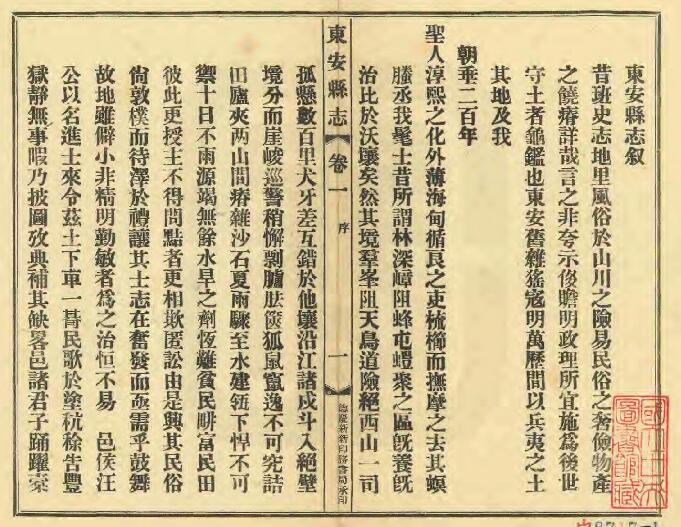 東安縣志叙
昔班史志地里風俗於山川之險易民俗之奢儉物產
之饒瘠詳哉言之非夸示後瞻明政理所宜施為後世
守土者龜鑑也東安舊雜猺寇明萬歷間以兵夷之土
其地及我
朝垂二百年
聖人淳熙之化外薄海甸循良之吏梳櫛而撫摩之去其螟
螣丞我髦士昔所謂林深嶂阻蜂屯螘聚之區旣養旣
治比於沃壤矣然其境羣峯阻天鳥道險絕西山一司
東安縣志
卷一
序
一
德慶新新印務書局承印
孤懸數百里犬牙差互錯於他壤沿江諸戍斗入絕壁
境分而崖峻巡警稍懈剽臚胠篋狐鼠竄逸不可究詰
田廬夾兩山間瘠雜沙石夏雨驟至水建瓴下悍不可
禦十日不雨源竭無餘水旱之劑恆難貧民畊富民田
彼此更授主不得問黠者更相欺匿訟由是興其民俗
尙敦樸而待澤於禮讓其士志在奮發而亟需乎鼓舞
故地雖僻小非精明勤敏者為之治恒不易 邑侯汪
公以名進士來令茲土下車一朞民歌於塗秔稌告豐
獄靜無事暇乃披圖攷典補其缺畧邑諸君子踊躍槖